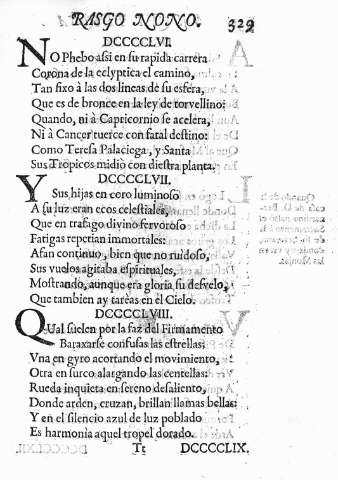 RASGO NONO. 329
DCCCCLVI.
NO Phebo assi en su rapida carrera
Corona de la eclyptica el camino,
Tan fixo à las dos lineas de su esfera,
Que es de bronce en la ley de torvellino:
Quando, ni à Capricornio se acelera,
Ni à Cancer tuerce con fatal destino:
Como Teresa Palaciega, y Santa
Sus Tropicos midiò con diestra planta.
DCCCCLVII.
Y Sus hijas en coro luminoso
A su luz eran ecos celestiales,
Que en trafago divino fervoroso
Fatigas repetian immortales:
Afan continuo, bien que no ruidoso,
Sus vuelos agitaba espirituales,
Mostrando, aunque era gloria su desvelo,
Que tambien ay tareas en el Cielo.
DCCCCLVIII.
QUal suelen por la faz del Firmamento
Baraxarse confusas las estrellas;
Vna en gyro acortando el movimiento,
Otra en surco alargando las centellas:
Rueda inquieta en sereno desaliento,
Donde arden, cruzan, brillan llamas bellas:
Y en el silencio azul de luz poblado
Es harmonia aquel tropel dorado.
Tt DCCCCLIX.